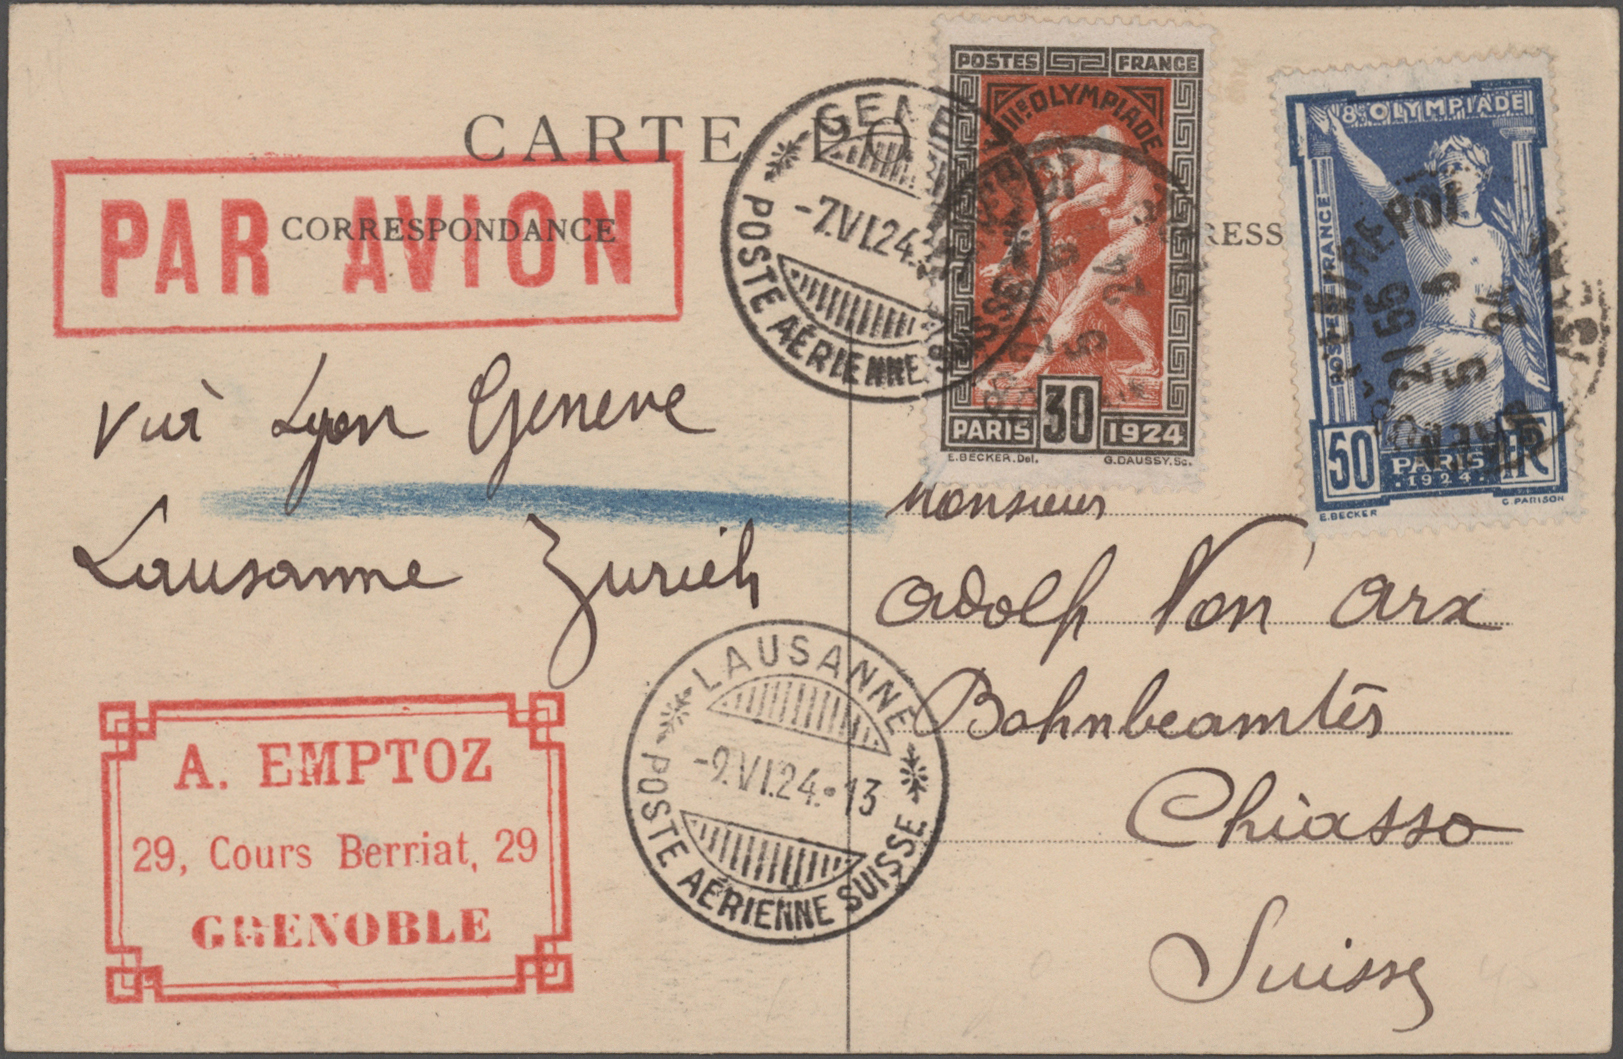 CARTE PO
PAR AVION
CORRESPONDANCE
RESS
POSTES FRANCE
VIIIE OLYMPIADE
30
PARIS 1924
E.BECKER.Del. G.DAUSSY.Sc.
8E OLYMPIADE
POSTES FRANCE
50 PARIS
1924
E.BECKER G PARISON
GENÈVE
-7.VI.24.
POSTE AÉRIENNE SUISSE
21 55
5 6
24
via Lyon Geneve
Lausanne Zurich
Monsieur
Adolf Von Arx
Bahnbeamter
Chiasso
Suisse
LAUSANNE
-9.VI.24.-13
POSTE AÉRIENNE SUISSE
A. EMPTOZ
29, Cours Berriat, 29
GRENOBLE